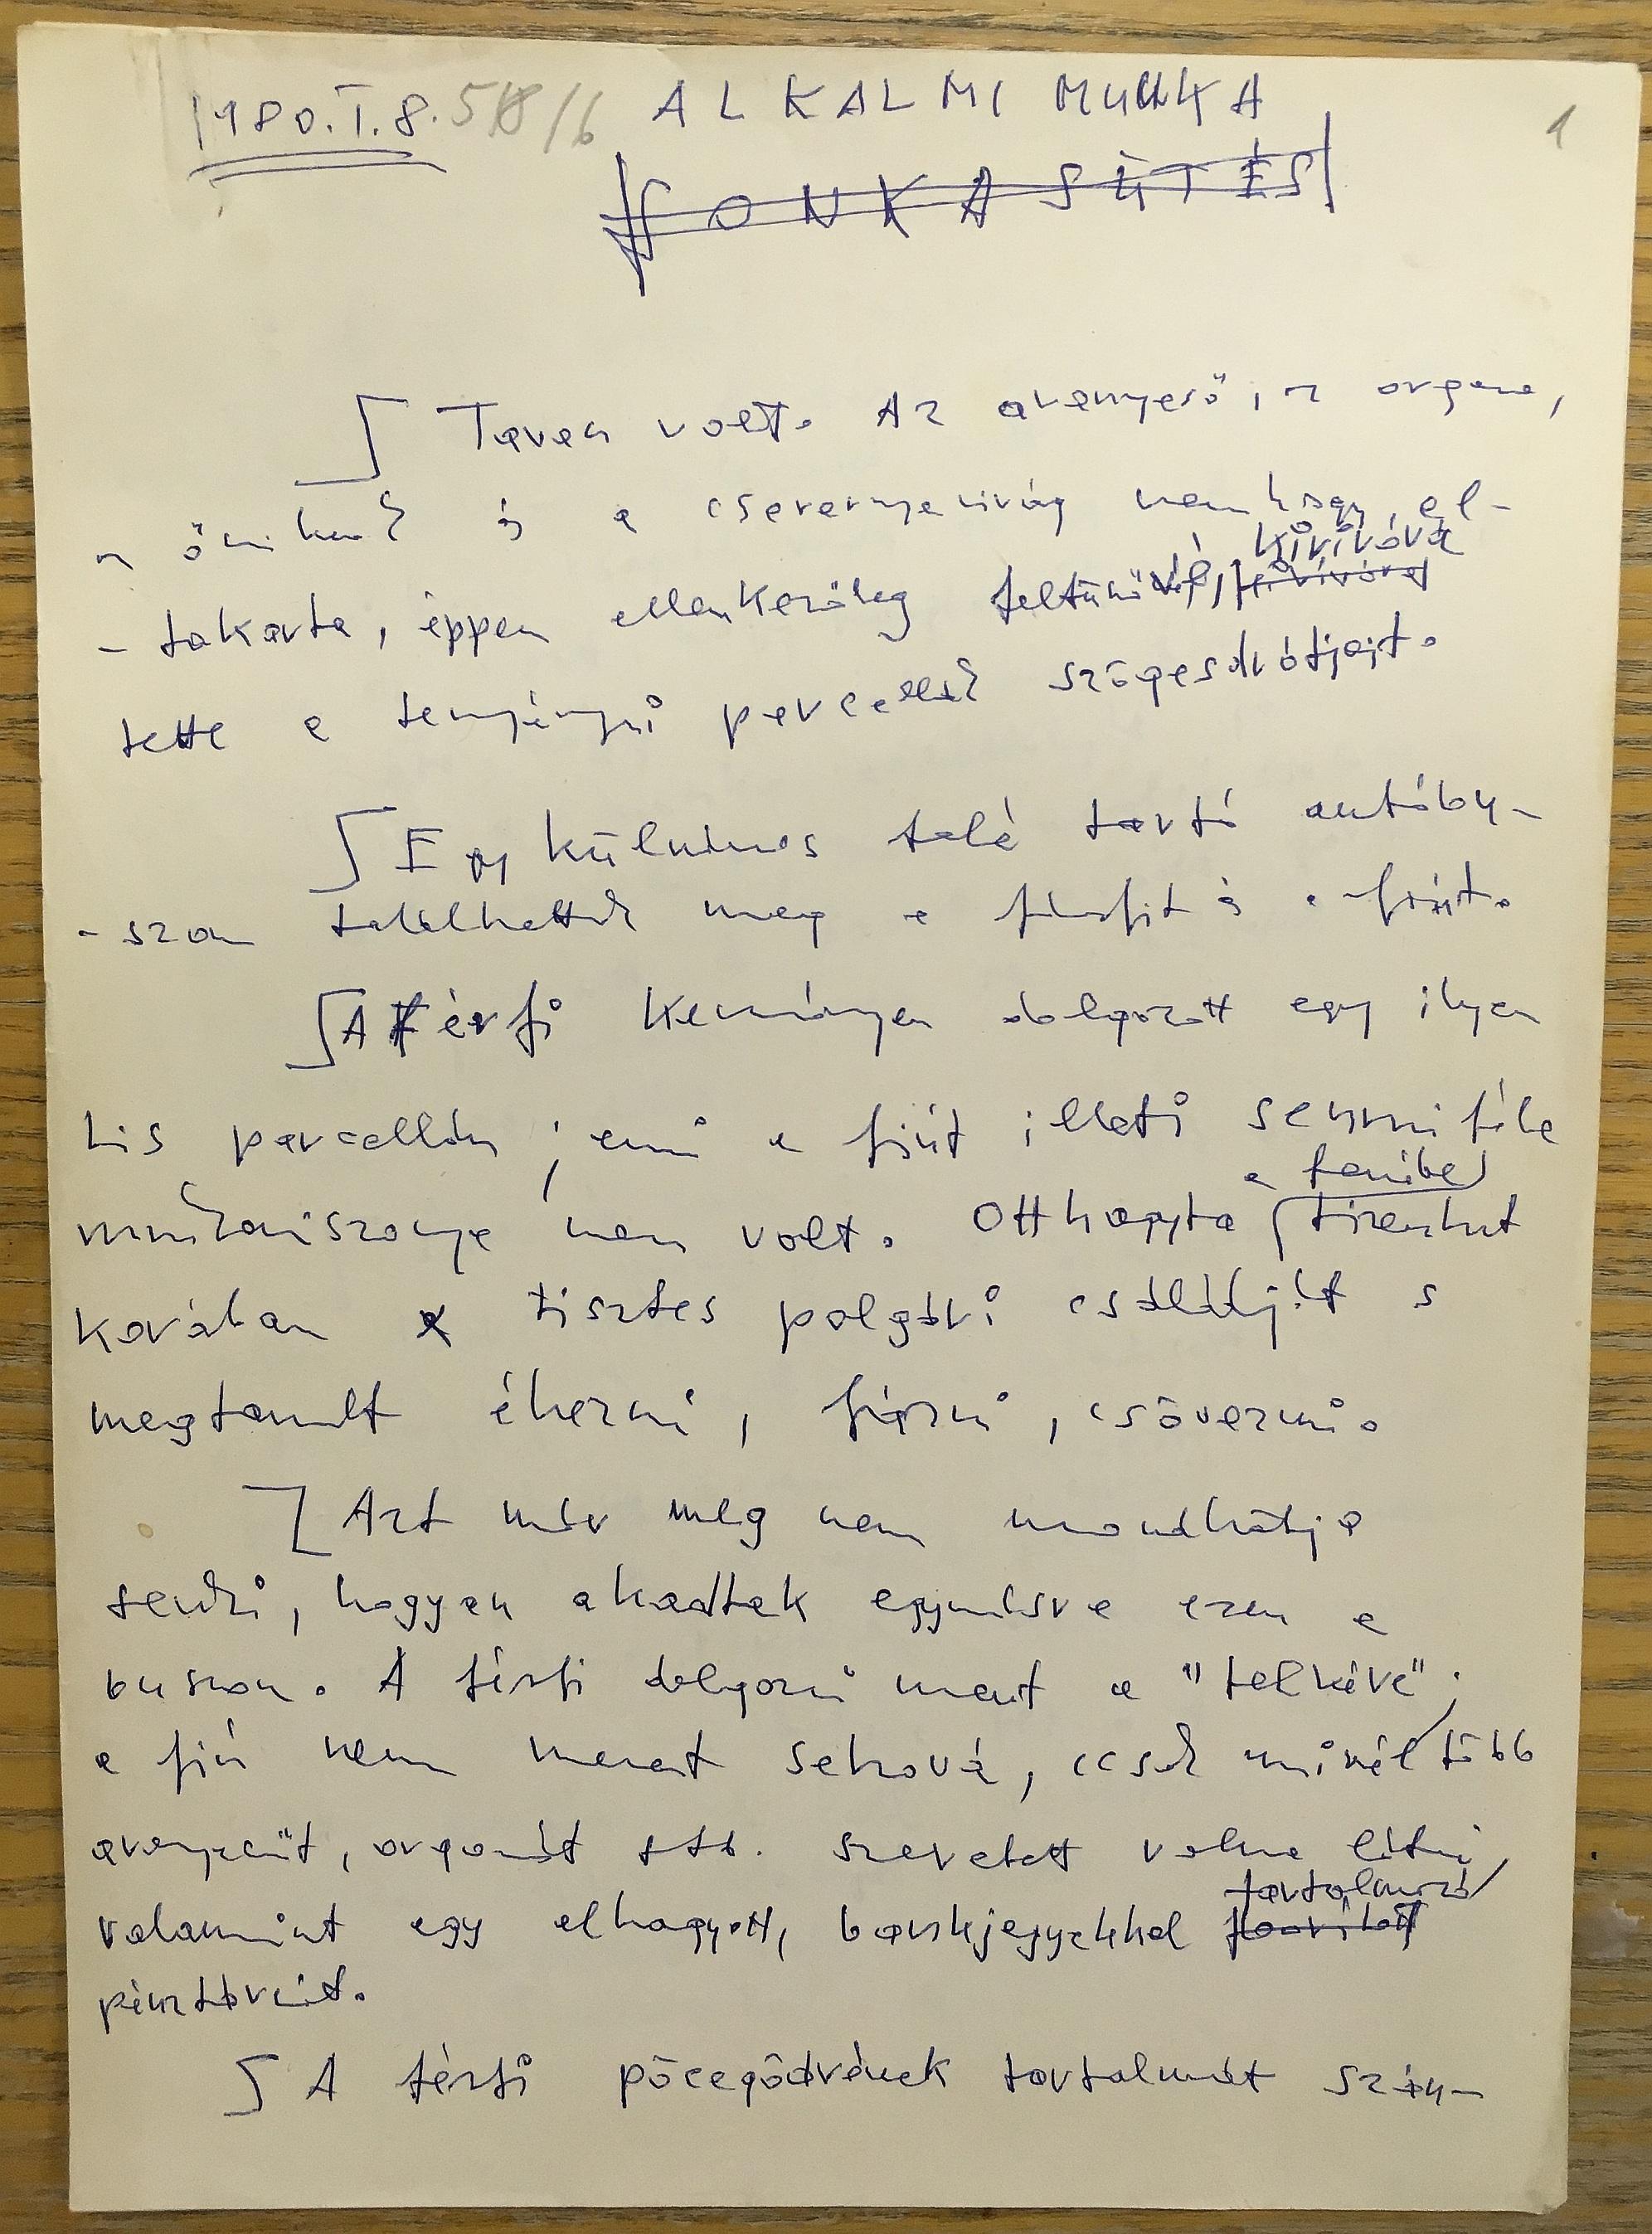 1980. I. 8. 58/6 ALKALMI MUNKA 1
SONKASÜTÉS
Tavasz volt. Az aranyeső, az orgona,
a és a cseresznyevirág nemhogy el-
- takarta, éppen ellenkezőleg feltűnővé, kirívóvá
tette a tenyérnyi parcellák szögesdrótjait.
Egy külváros felé tartó autóbu-
- szon találhattuk meg a férfit és a fiút.
A férfi keményen dolgozott egy ilyen
kis parcellán; ami a fiút illeti semmiféle
munkaiszonya nem volt. Otthagyta a fenébe tizenhat
korában tisztes polgári családját s
megtanult éhezni, fázni, csövezni.
Azt már meg nem mondhatja
senki, hogyan akadtak egymásra ezen a
buszon. A férfi dolgozni ment a "telkére";
a fiú nem ment sehová, csak minél több
aranyesőt, orgonát stb. szeretett volna látni,
valamint egy elhagyott, bankjegyekkel tartalmazó
pénztárcát.
A férfi pöcegödrének tartalmát szán-